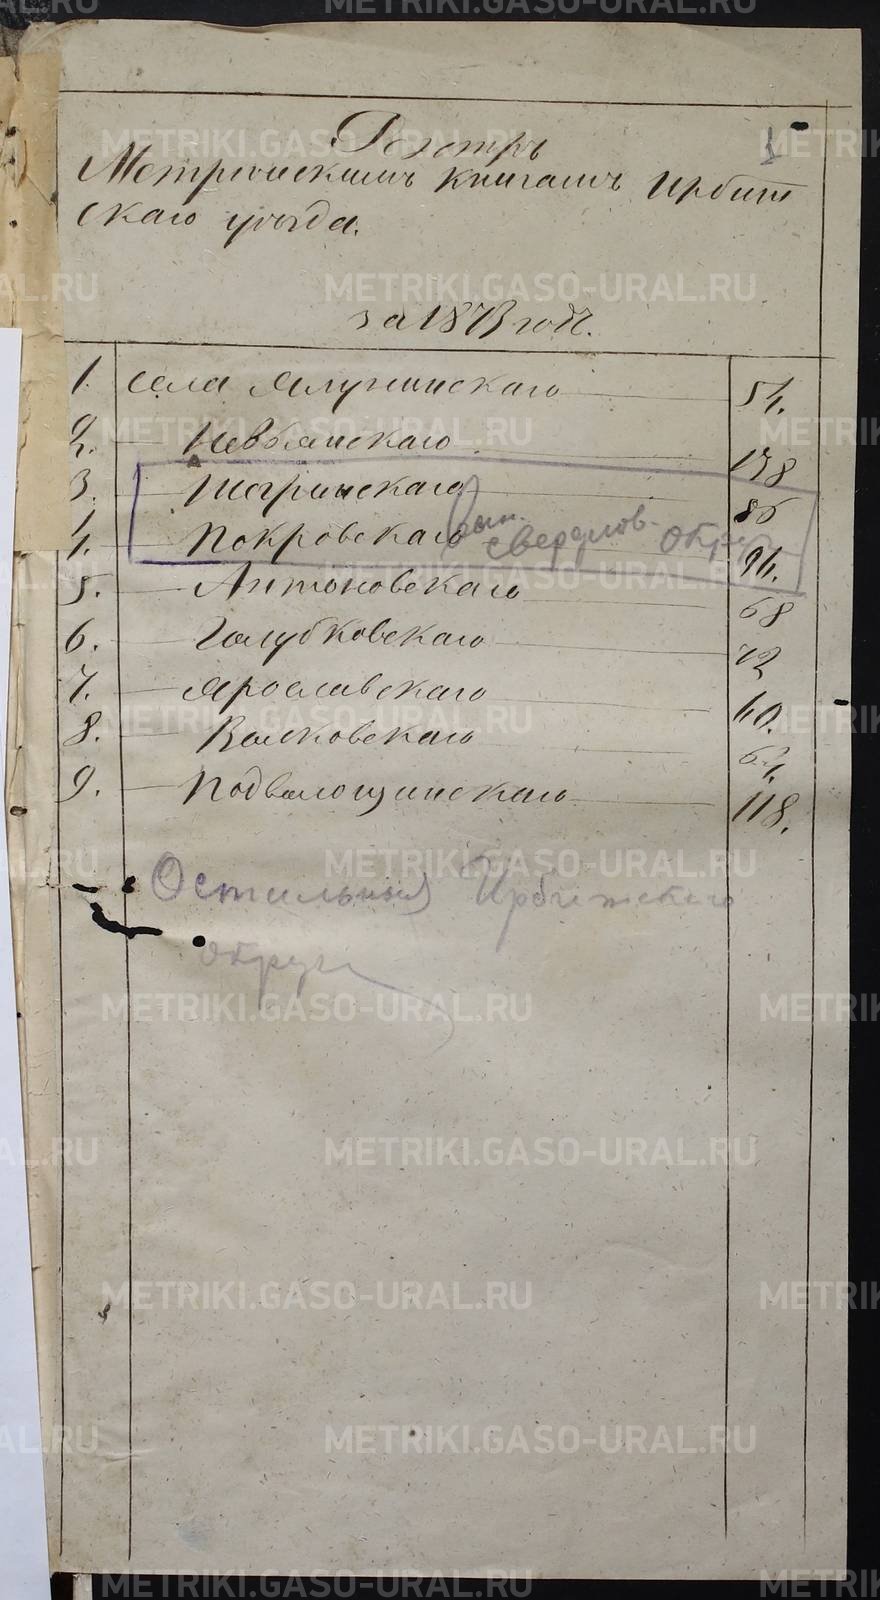 Реэстръ
Метрическимъ книгамъ Ирбит
скаго уѣзда.
за 1873 годъ.
1. Села Ялунинскаго 54.
2. — Невьянскаго 178
3. — Шогринскаго 86
4. — Покровскаго 94.
вып. свердлов. окр.
5. — Антоновскаго 68
6. — Голубковскаго 72
7. — Ярославскаго 60.
8. — Волковскаго 64.
9. — Подволошинскаго 118.
Остальныя Ирбитскаго
округа
METRIKI.GASO-URAL.RU